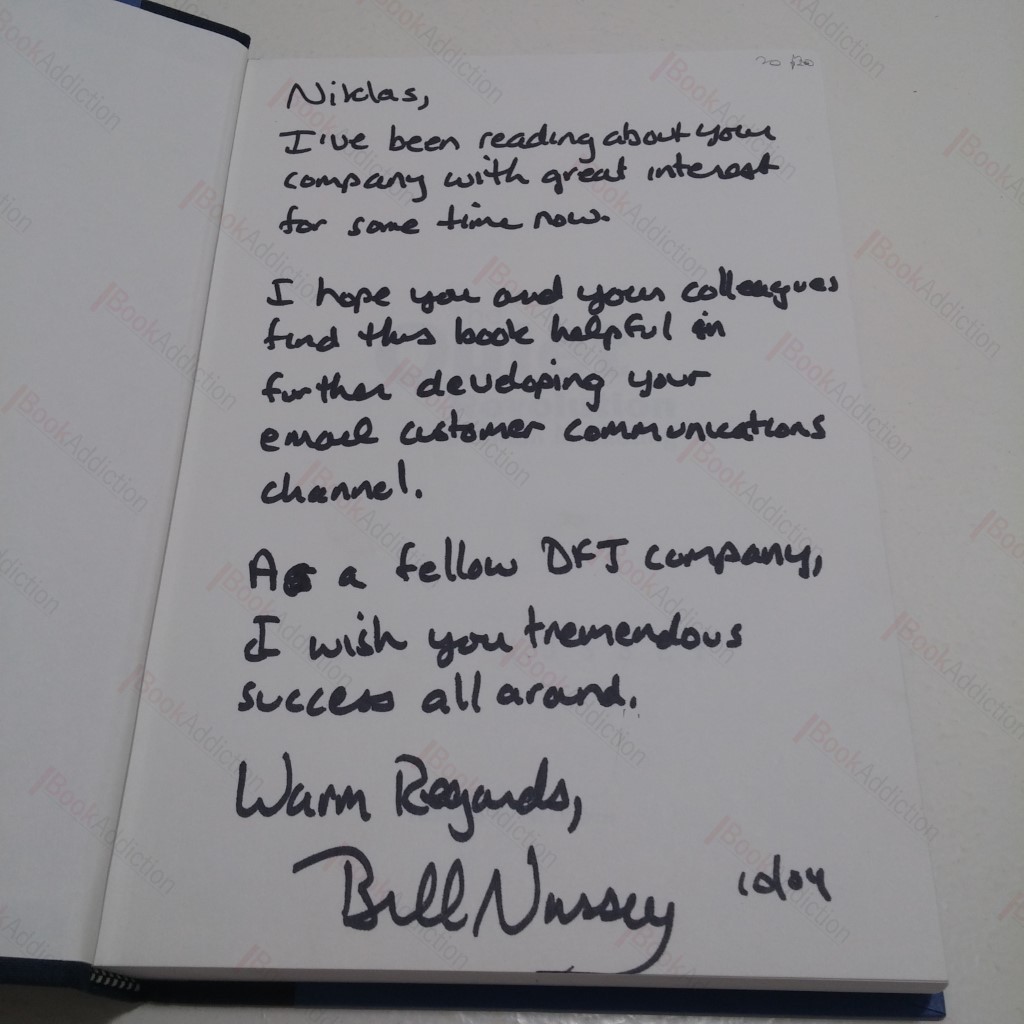 20 $20
Niklas,
I've been reading about your
company with great interest
for some time now.
I hope you and your colleagues
find this book helpful in
further developing your
email customer communications
channel.
As a fellow DFJ company,
I wish you tremendous
success all around.
Warm Regards,
Bill Nussey 10/04
BookAddiction